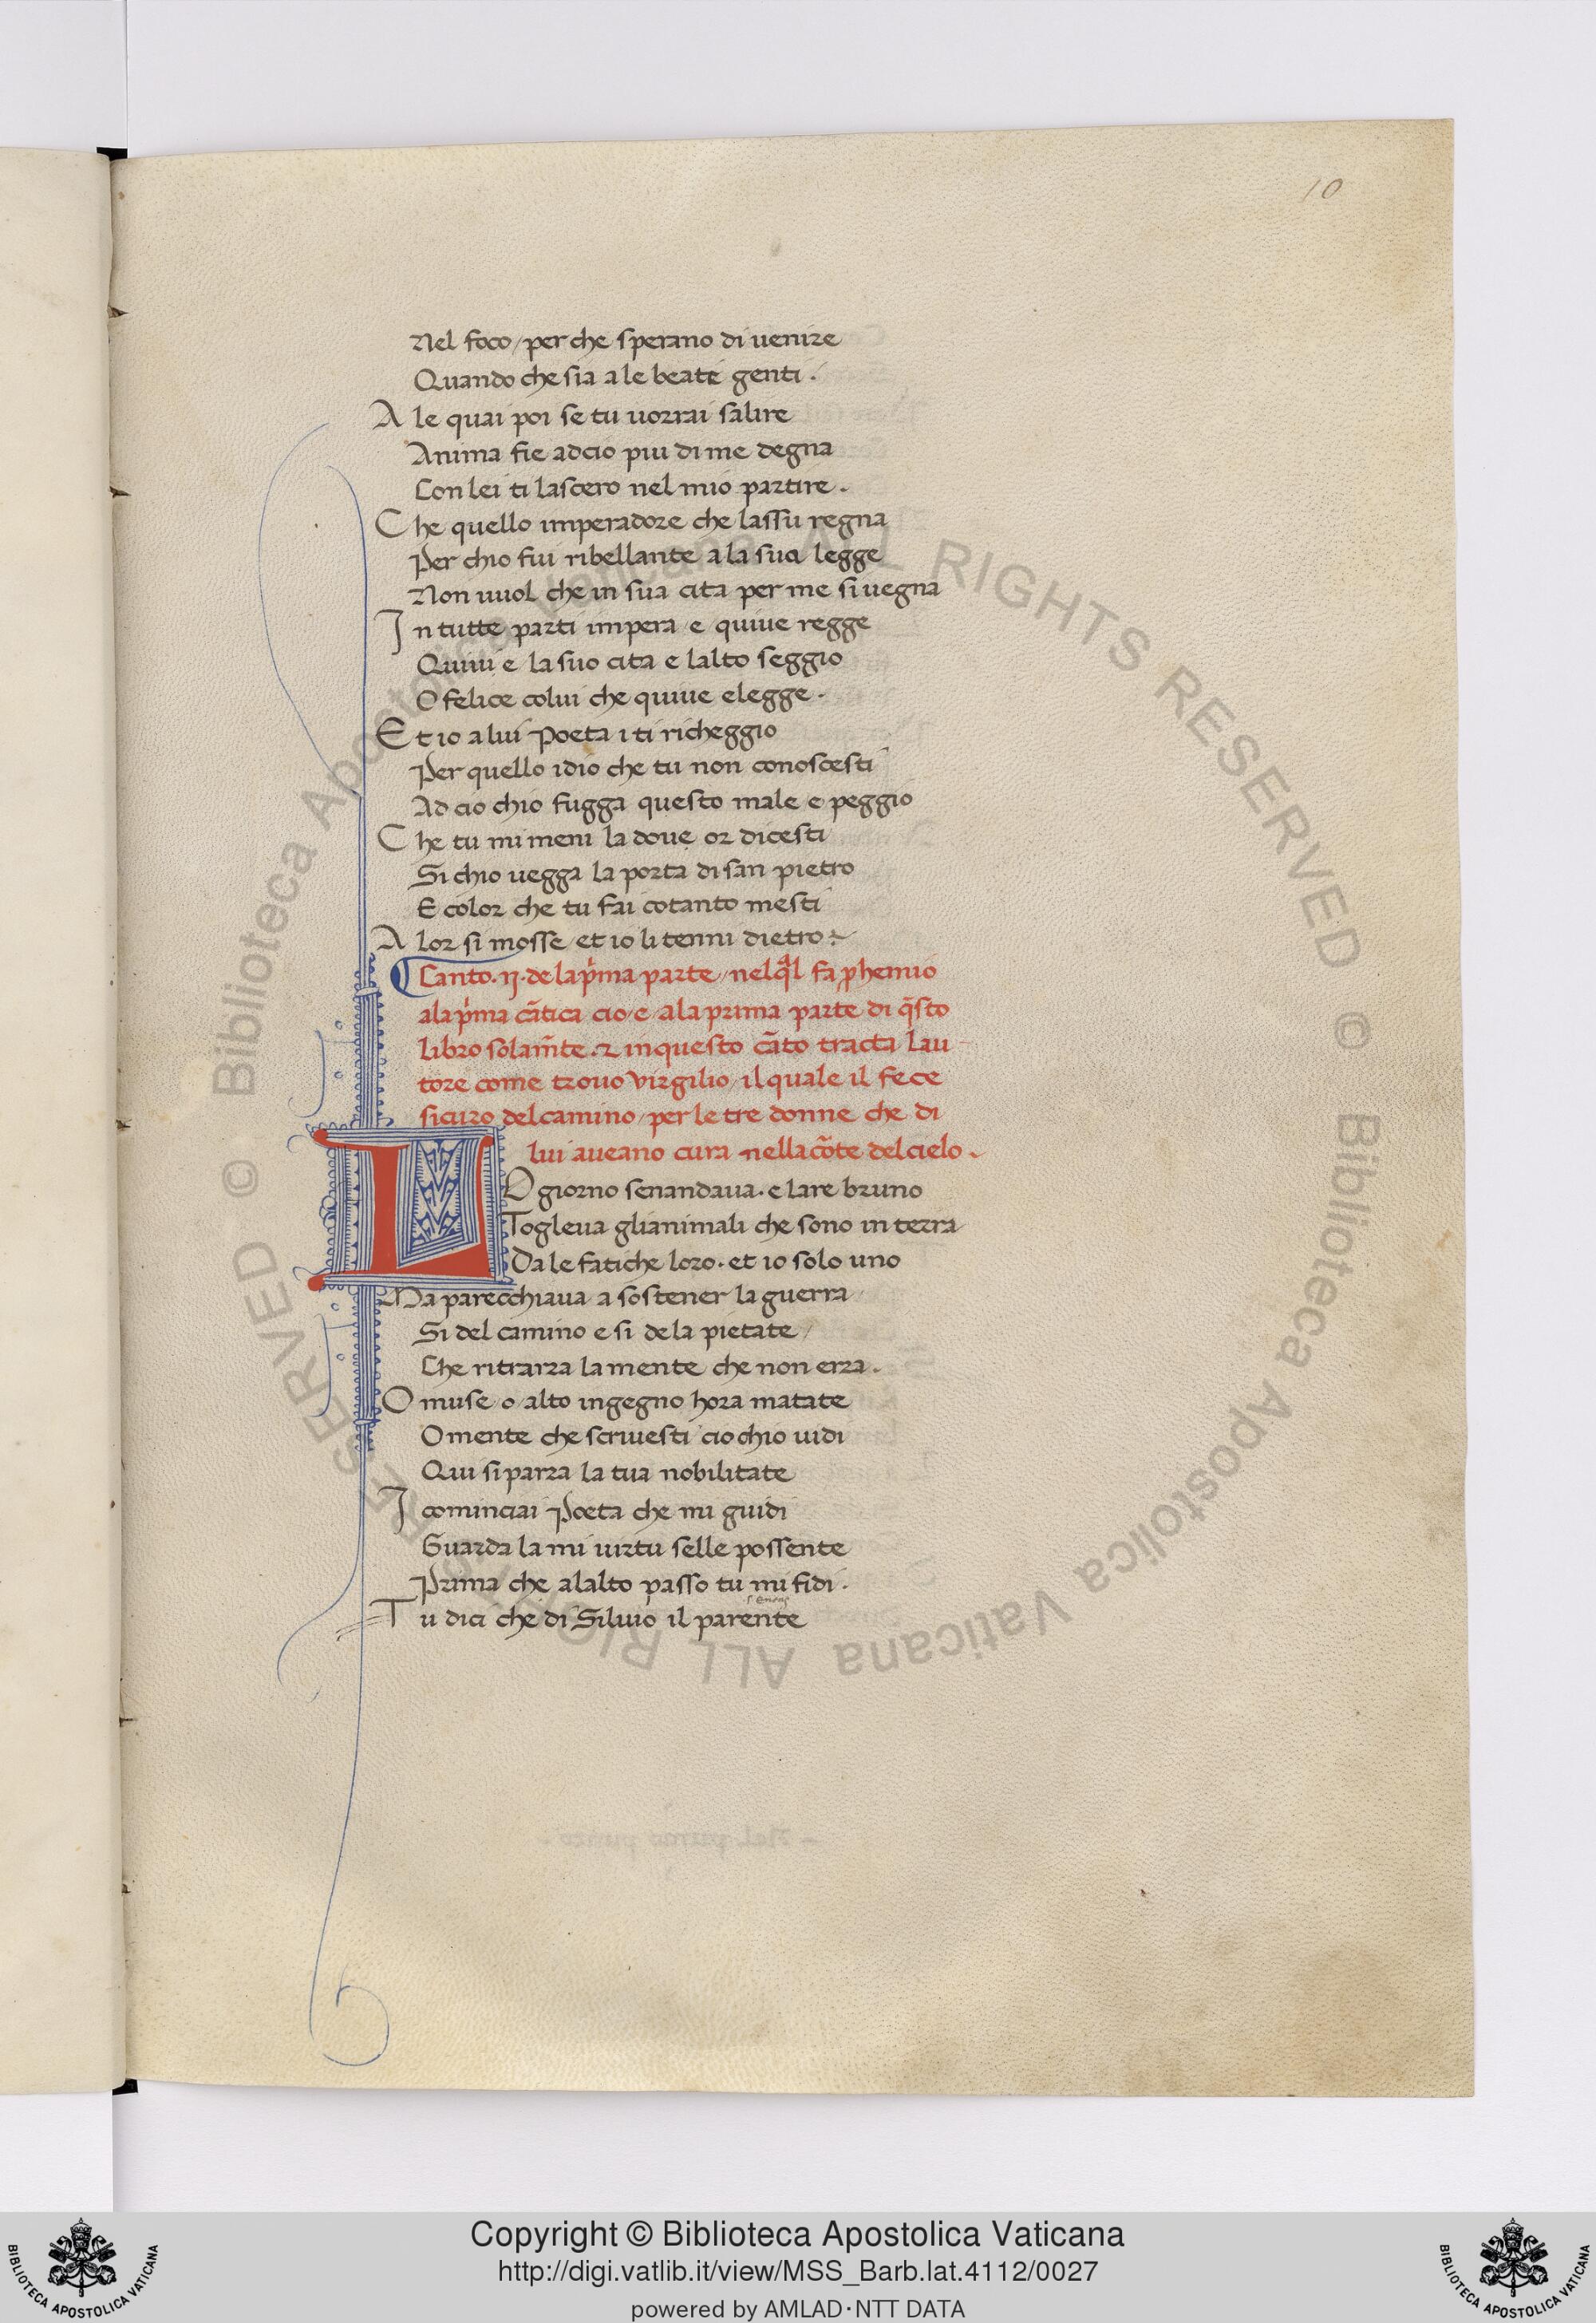 10
Nel foco / per che sperano di uenire
Quando che sia a le beate genti .
A le quai poi se tu uorrai salire
Anima fie adcio piu di me degna
Con lei ti lascero nel mio partire .
Che quello imperadore che lassu regna
Per chio fui ribellante a la sua legge
Non uuol che in sua cita per me si uegna
In tutte parti impera e quiue regge
Quiui e la suo cita e lalto seggio
O felice colui che quiue elegge .
Et io a lui Poeta i ti richeggio
Per quello idio che tu non conoscesti
Ad cio chio fugga questo male e peggio
Che tu mi meni la doue or dicesti
Si chio uegga la porta di san pietro
E color che tu fai cotanto mesti
Alor si mosse / et io li tenni dietro :~
Canto . ij . de la p̍ma parte / nel q̄l fa ꝓhemio
a la p̍ma cātica cio / e / a la prima parte di q̄sto
libro solam̄te . ⁊ in questo cāto tracta lau-
tore come trouo virgilio / il quale il fece
sicuro del camino / per le tre donne che di
lui aueano cura nella cōte del cielo .
LO giorno senandaua . e lare bruno
Togleua glianimali che sono in terra
Da le fatiche loro . et io solo uno
Ma parecchiaua a sostener la guerra
Si del camino e si de la pietate /
Che ritrarra la mente che non erra .
O muse o alto ingegno hora matate
O mente che scriuesti cio chio uidi
Qui si parra la tua nobilitate
I cominciai Poeta che mi guidi
Guarda la mi uirtu selle possente
Prima che alalto passo tu mi fidi .
Tu dici che di Siluio il parente
© Biblioteca Apostolica Vaticana ALL RIGHTS RESERVED
© Biblioteca Apostolica Vaticana ALL RIGHTS RESERVED
Copyright © Biblioteca Apostolica Vaticana
http://digi.vatlib.it/view/MSS_Barb.lat.4112/0027
powered by AMLAD·NTT DATA
BIBLIOTECA APOSTOLICA VATICANA
BIBLIOTECA APOSTOLICA VATICANA